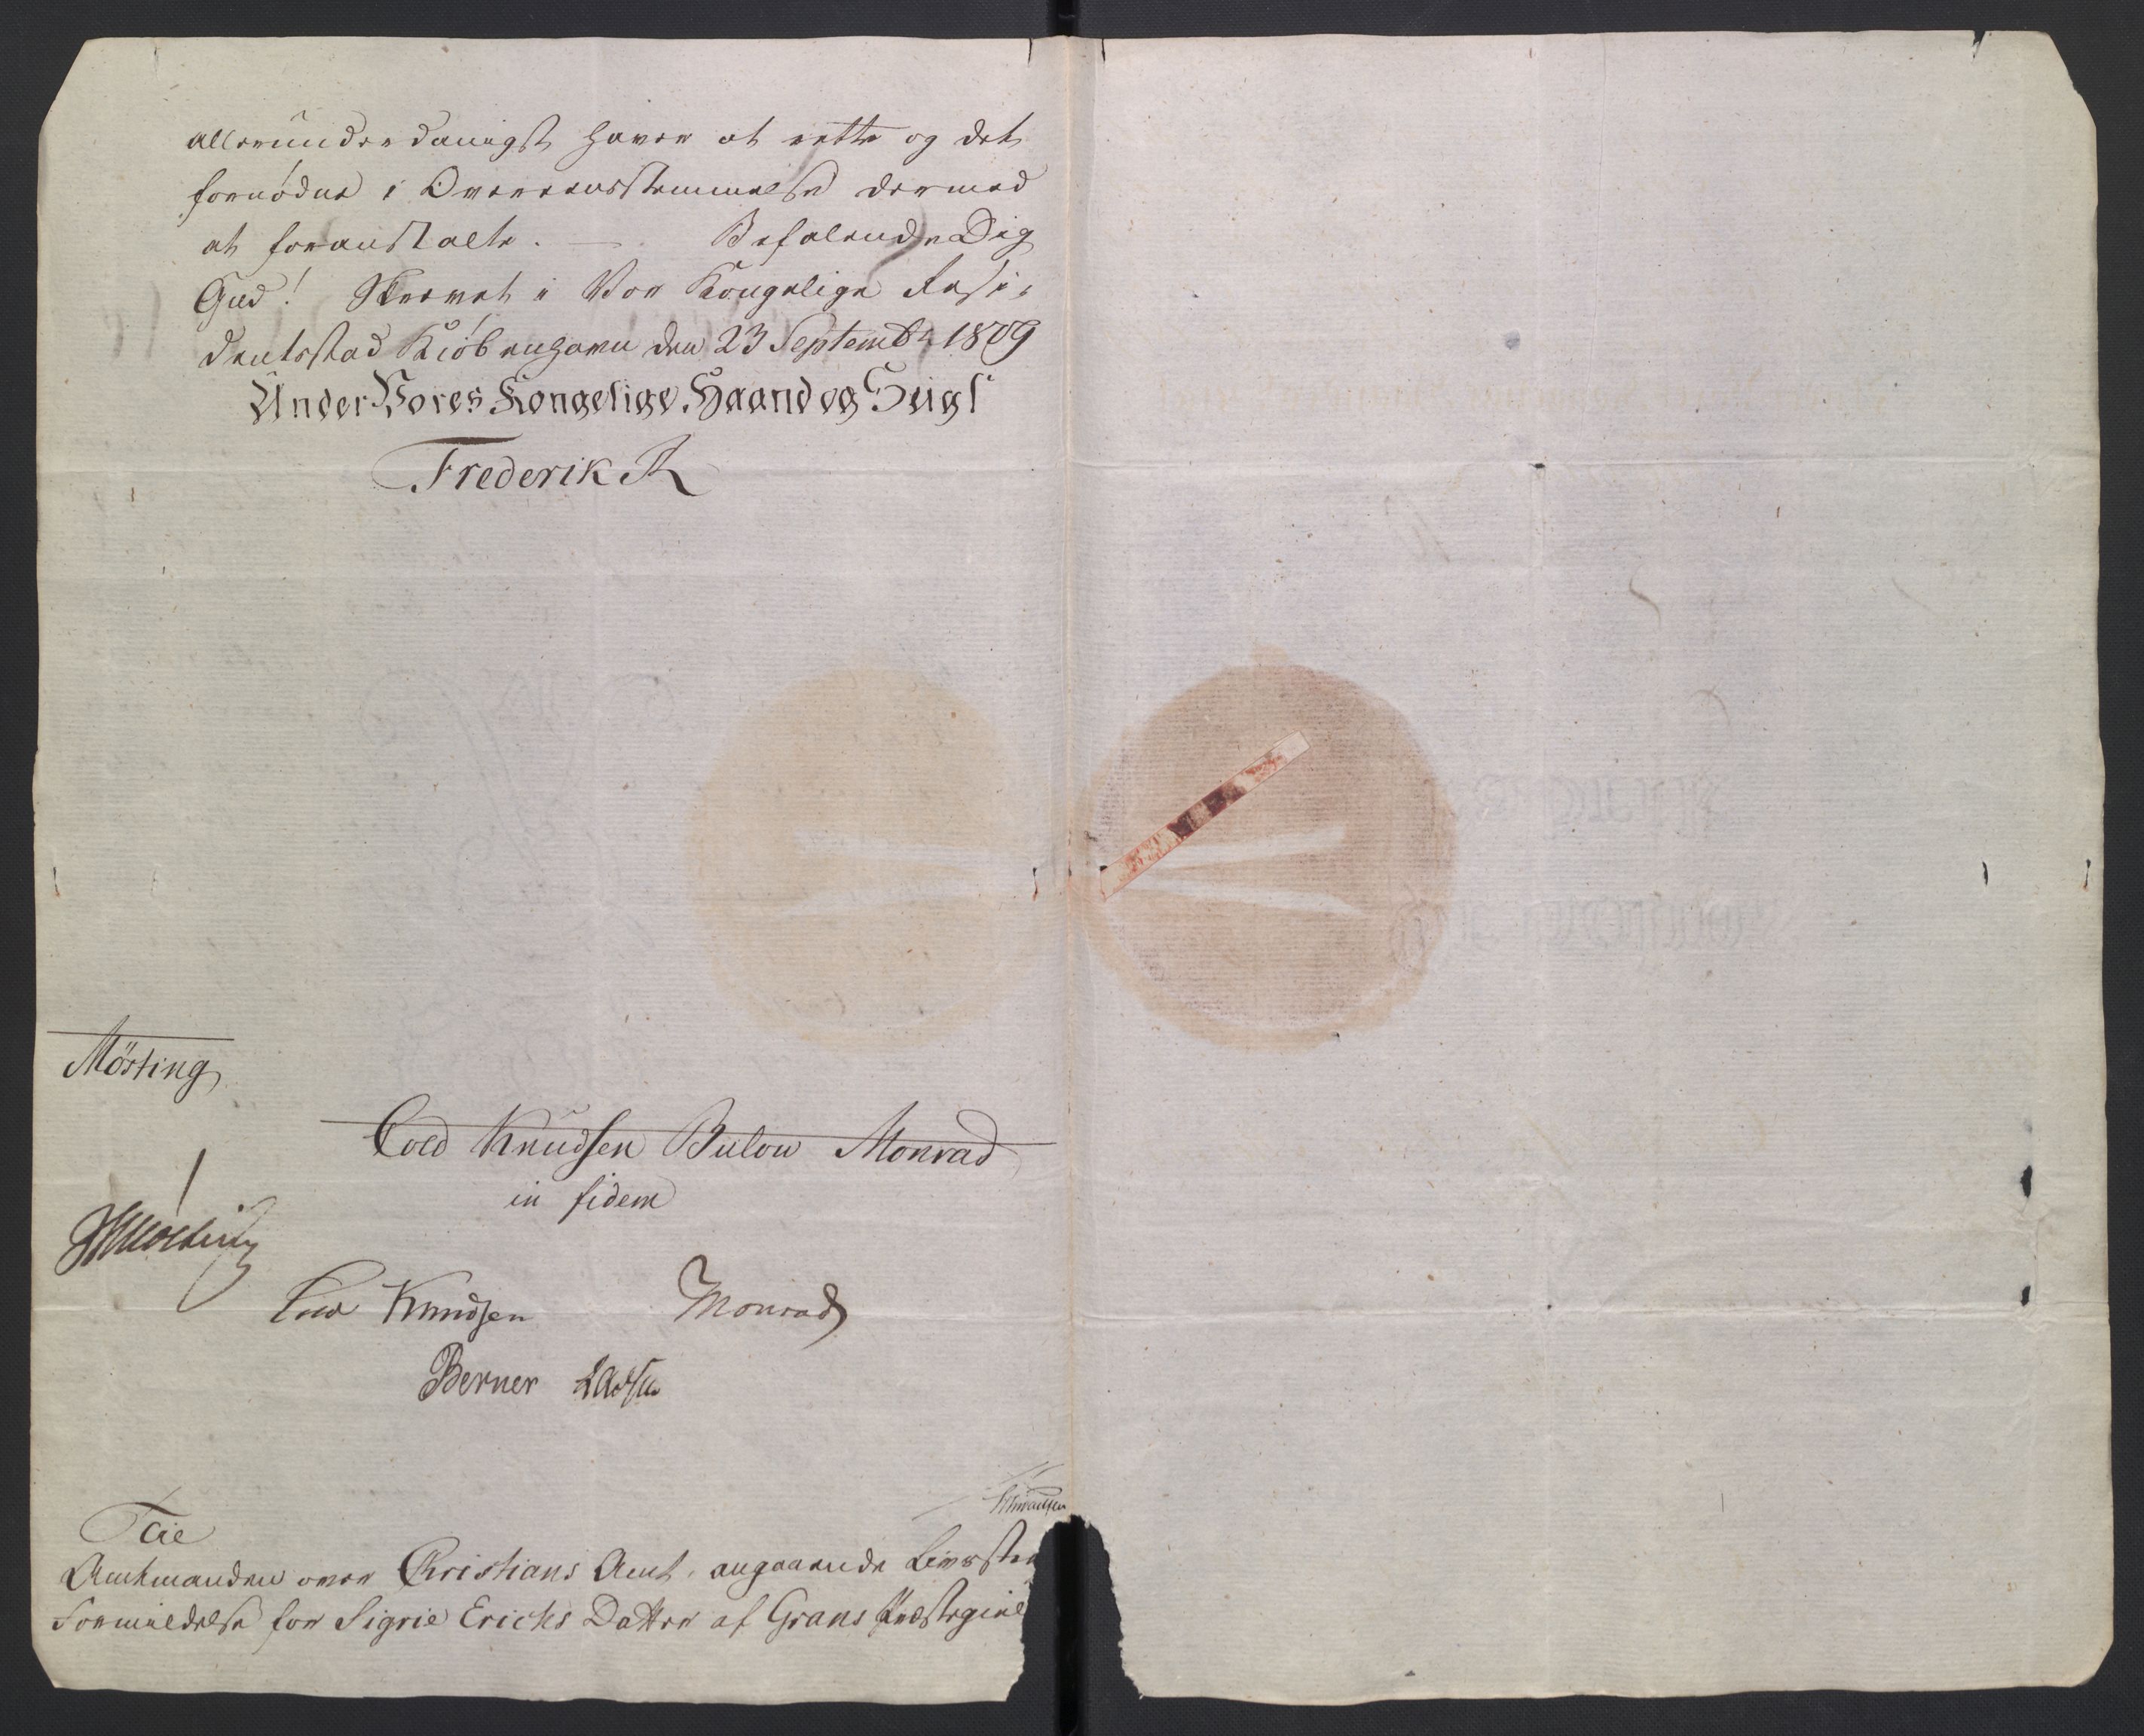 allerunderdanigst haver at rette og det
fornødne i Overeensstemmelse dermed
at foranstalte. — Befalende Dig
Gud! Skrevet i Vor Kongelige Resi-
dentsstad Kiøbenhavn den 23 Septembr 1809
Under Vores Kongelige Haand og Seigl
Frederik R
Mösting
Cold Knudsen Bülow Monrad
in fidem
JMösting
Cold Knudsen Monrad
Berner Lassen
Knudsen
Til
Amtmanden over Christians Amt, angaaende Livsstra
Formildelse for Sigrie Erichs Datter af Grans Præstegiel